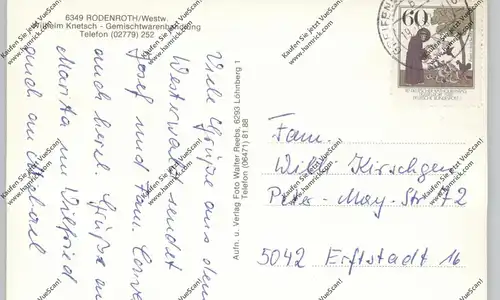 6349 RODENROTH/Westw.
Wilhelm Knetsch - Gemischtwarenhandlung
Telefon (02779) 252
Viele Grüße aus dem
Westerwald sendet
Josef und Fam.
auch herzl. Grüße an
Marita und Wilfried
auch an Michael
Aufn. u. Verlag Foto Walter Reebs, 6293 Löhnberg 1
Telefon (06471) 81 88
60
DEUTSCHE BUNDESPOST
Fam.
Willi Kirschgen
Peter-May-Str. 72
5042 Erftstadt 16
Kaufen Sie jetzt VueScan!
www.hamrick.com